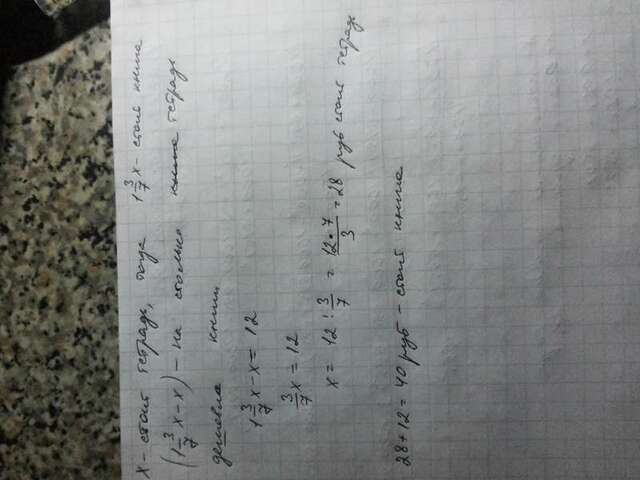 x - стоит тетрадь, тогда 1 3/7 x - стоит книга
(1 3/7 x - x) - на столько книга тетрадь
дешевле книги
1 3/7 x - x = 12
3/7 x = 12
x = 12 : 3/7 = 12 • 7 / 3 = 28 руб стоит тетрадь
28 + 12 = 40 руб - стоит книга